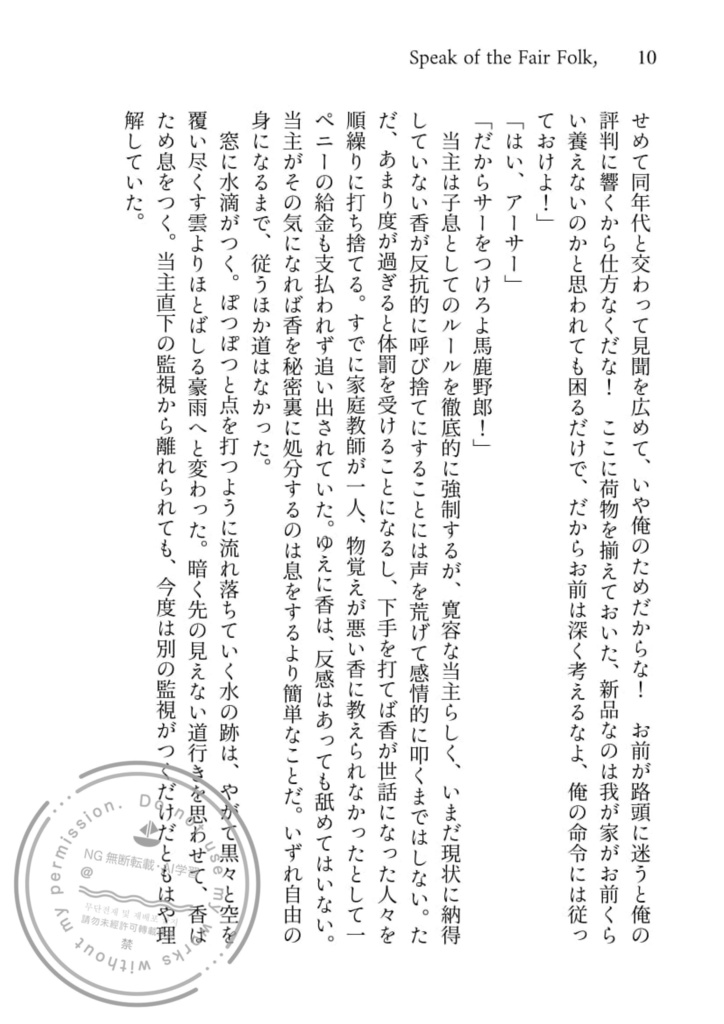 Speak of the Fair Folk, 10
せめて同年代と交わって見聞を広めて、いや俺のためだからな！　お前が路頭に迷うと俺の
評判に響くから仕方なくだな！　ここに荷物を揃えておいた、新品なのは我が家がお前くら
い養えないのかと思われても困るだけで、だからお前は深く考えるなよ、俺の命令には従っ
ておけよ！」
「はい、アーサー」
「だからサーをつけろよ馬鹿野郎！」
　当主は子息としてのルールを徹底的に強制するが、寛容な当主らしく、いまだ現状に納得
していない香が反抗的に呼び捨てにすることには声を荒げて感情的に叩くまではしない。た
だ、あまり度が過ぎると体罰を受けることになるし、下手を打てば香が世話になった人々を
順繰りに打ち捨てる。すでに家庭教師が一人、物覚えが悪い香に教えられなかったとして一
ペニーの給金も支払われず追い出されていた。ゆえに香は、反感はあっても舐めてはいない。
当主がその気になれば香を秘密裏に処分するのは息をするより簡単なことだ。いずれ自由の
身になるまで、従うほか道はなかった。
　窓に水滴がつく。ぽつぽつと点を打つように流れ落ちていく水の跡は、やがて黒々と空を
覆い尽くす雲よりほとばしる豪雨へと変わった。暗く先の見えない道行きを思わせて、香は
ため息をつく。当主直下の監視から離れられても、今度は別の監視がつくだけだともはや理
解していた。
Do not use my works without my permission.
NG 無断転載・AI学習
@
무단전재 및 재배포
請勿未經許可轉載
禁